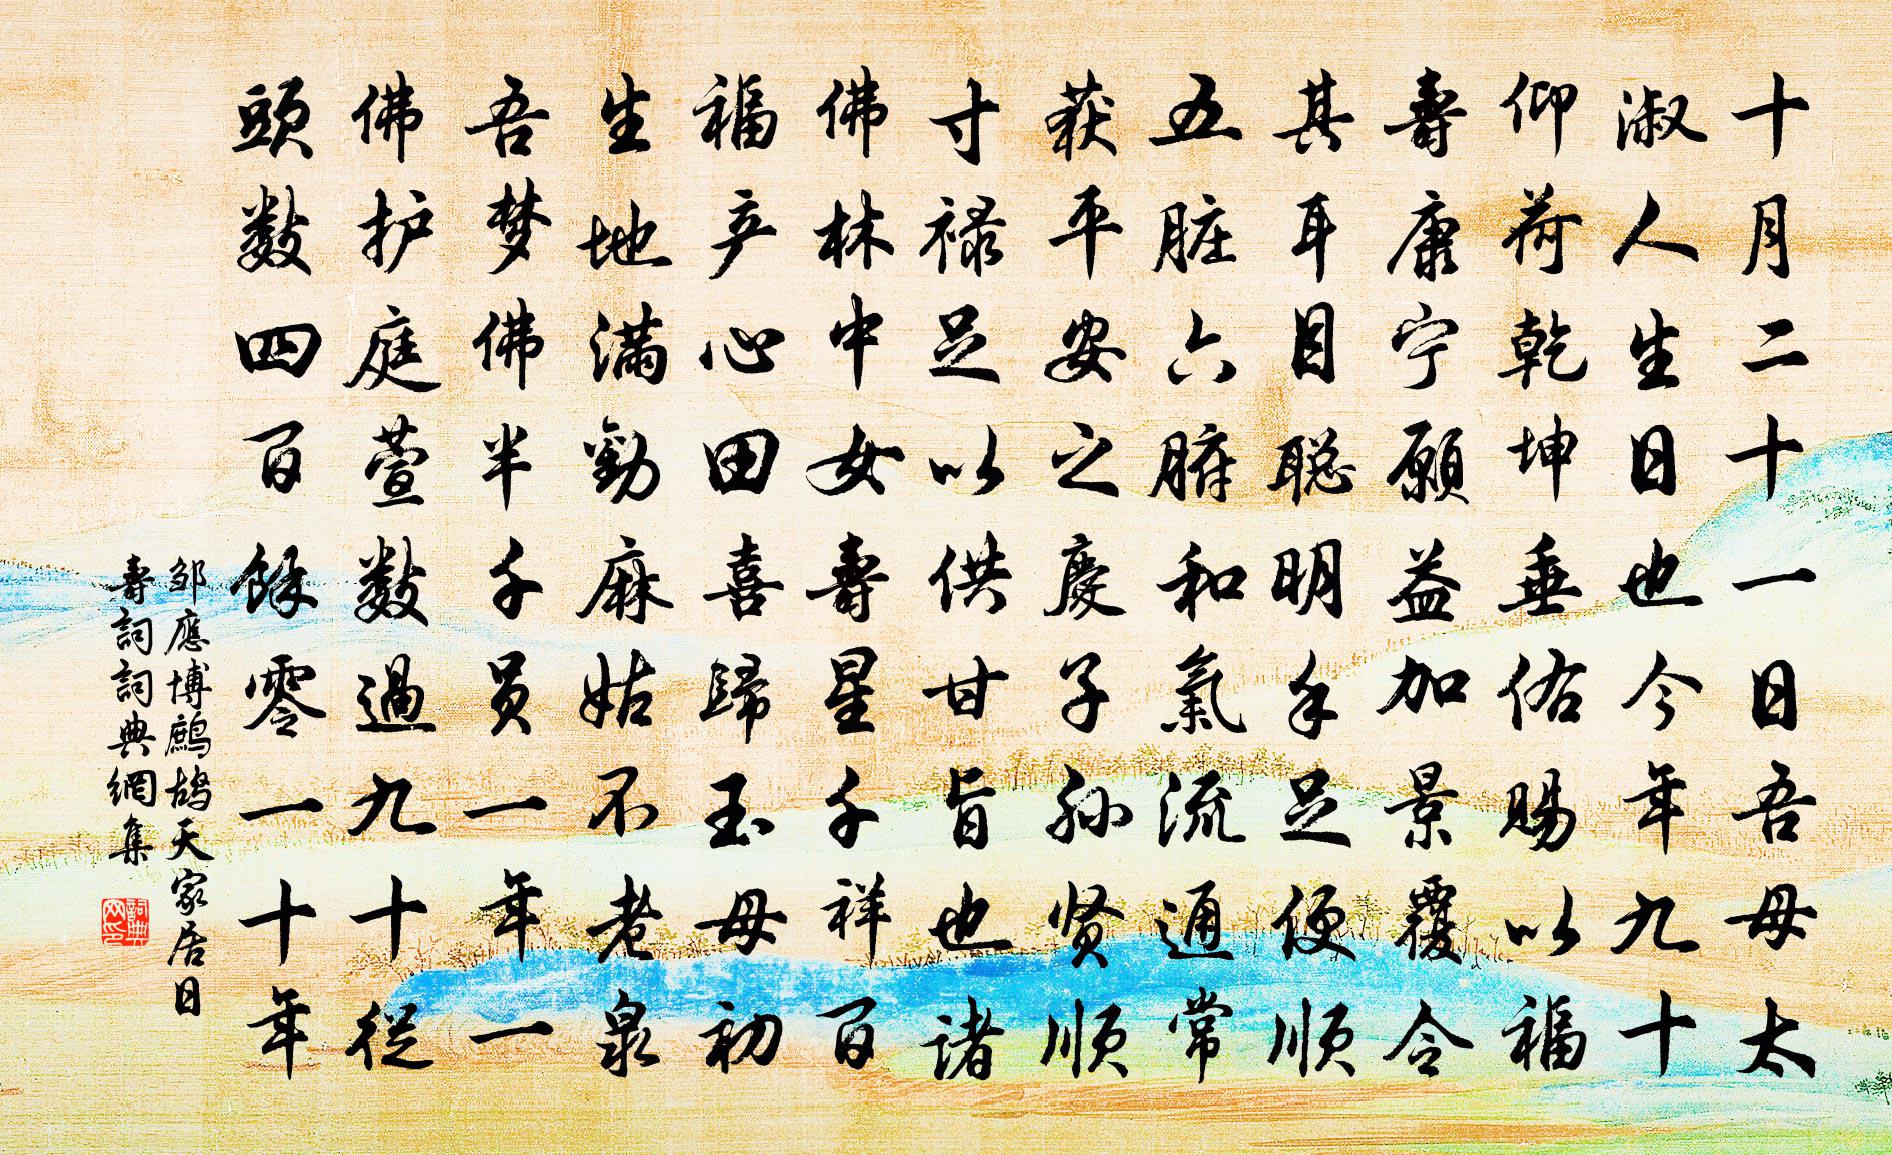 十月二十一日吾母太
淑人生日也今年九十
仰荷乾坤垂佑賜以福
壽康宁願益加景覆令
其耳目聪明手足便順
五脏六腑和氣流通常
获平安之慶子孙贤順
寸禄足以供甘旨也诸
佛林中女壽星千祥百
福产心田喜歸玉母初
生地滿勸麻姑不老泉
吾梦佛半千员一年一
佛护庭萱數過九十從
頭數四百餘零一十年
邹應博鷓鴣天家居日
壽詞詞典網集
詞典网印